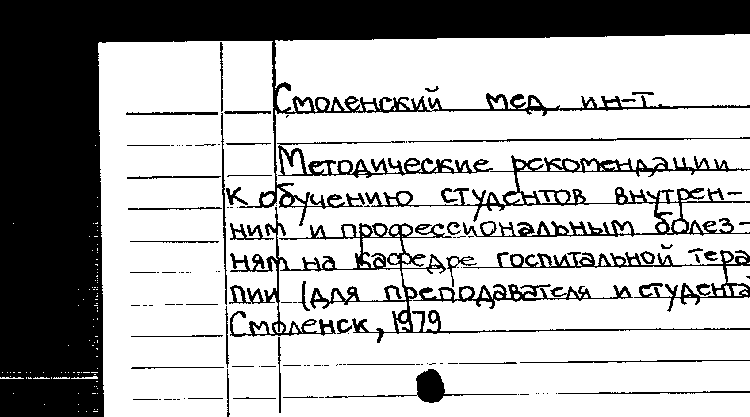 Смоленский мед. ин-т.
Методические рекомендации
к обучению студентов внутрен-
ним и профессиональным болез-
ням на кафедре госпитальной тера
пии (для преподавателя и студента
Смоленск, 1979